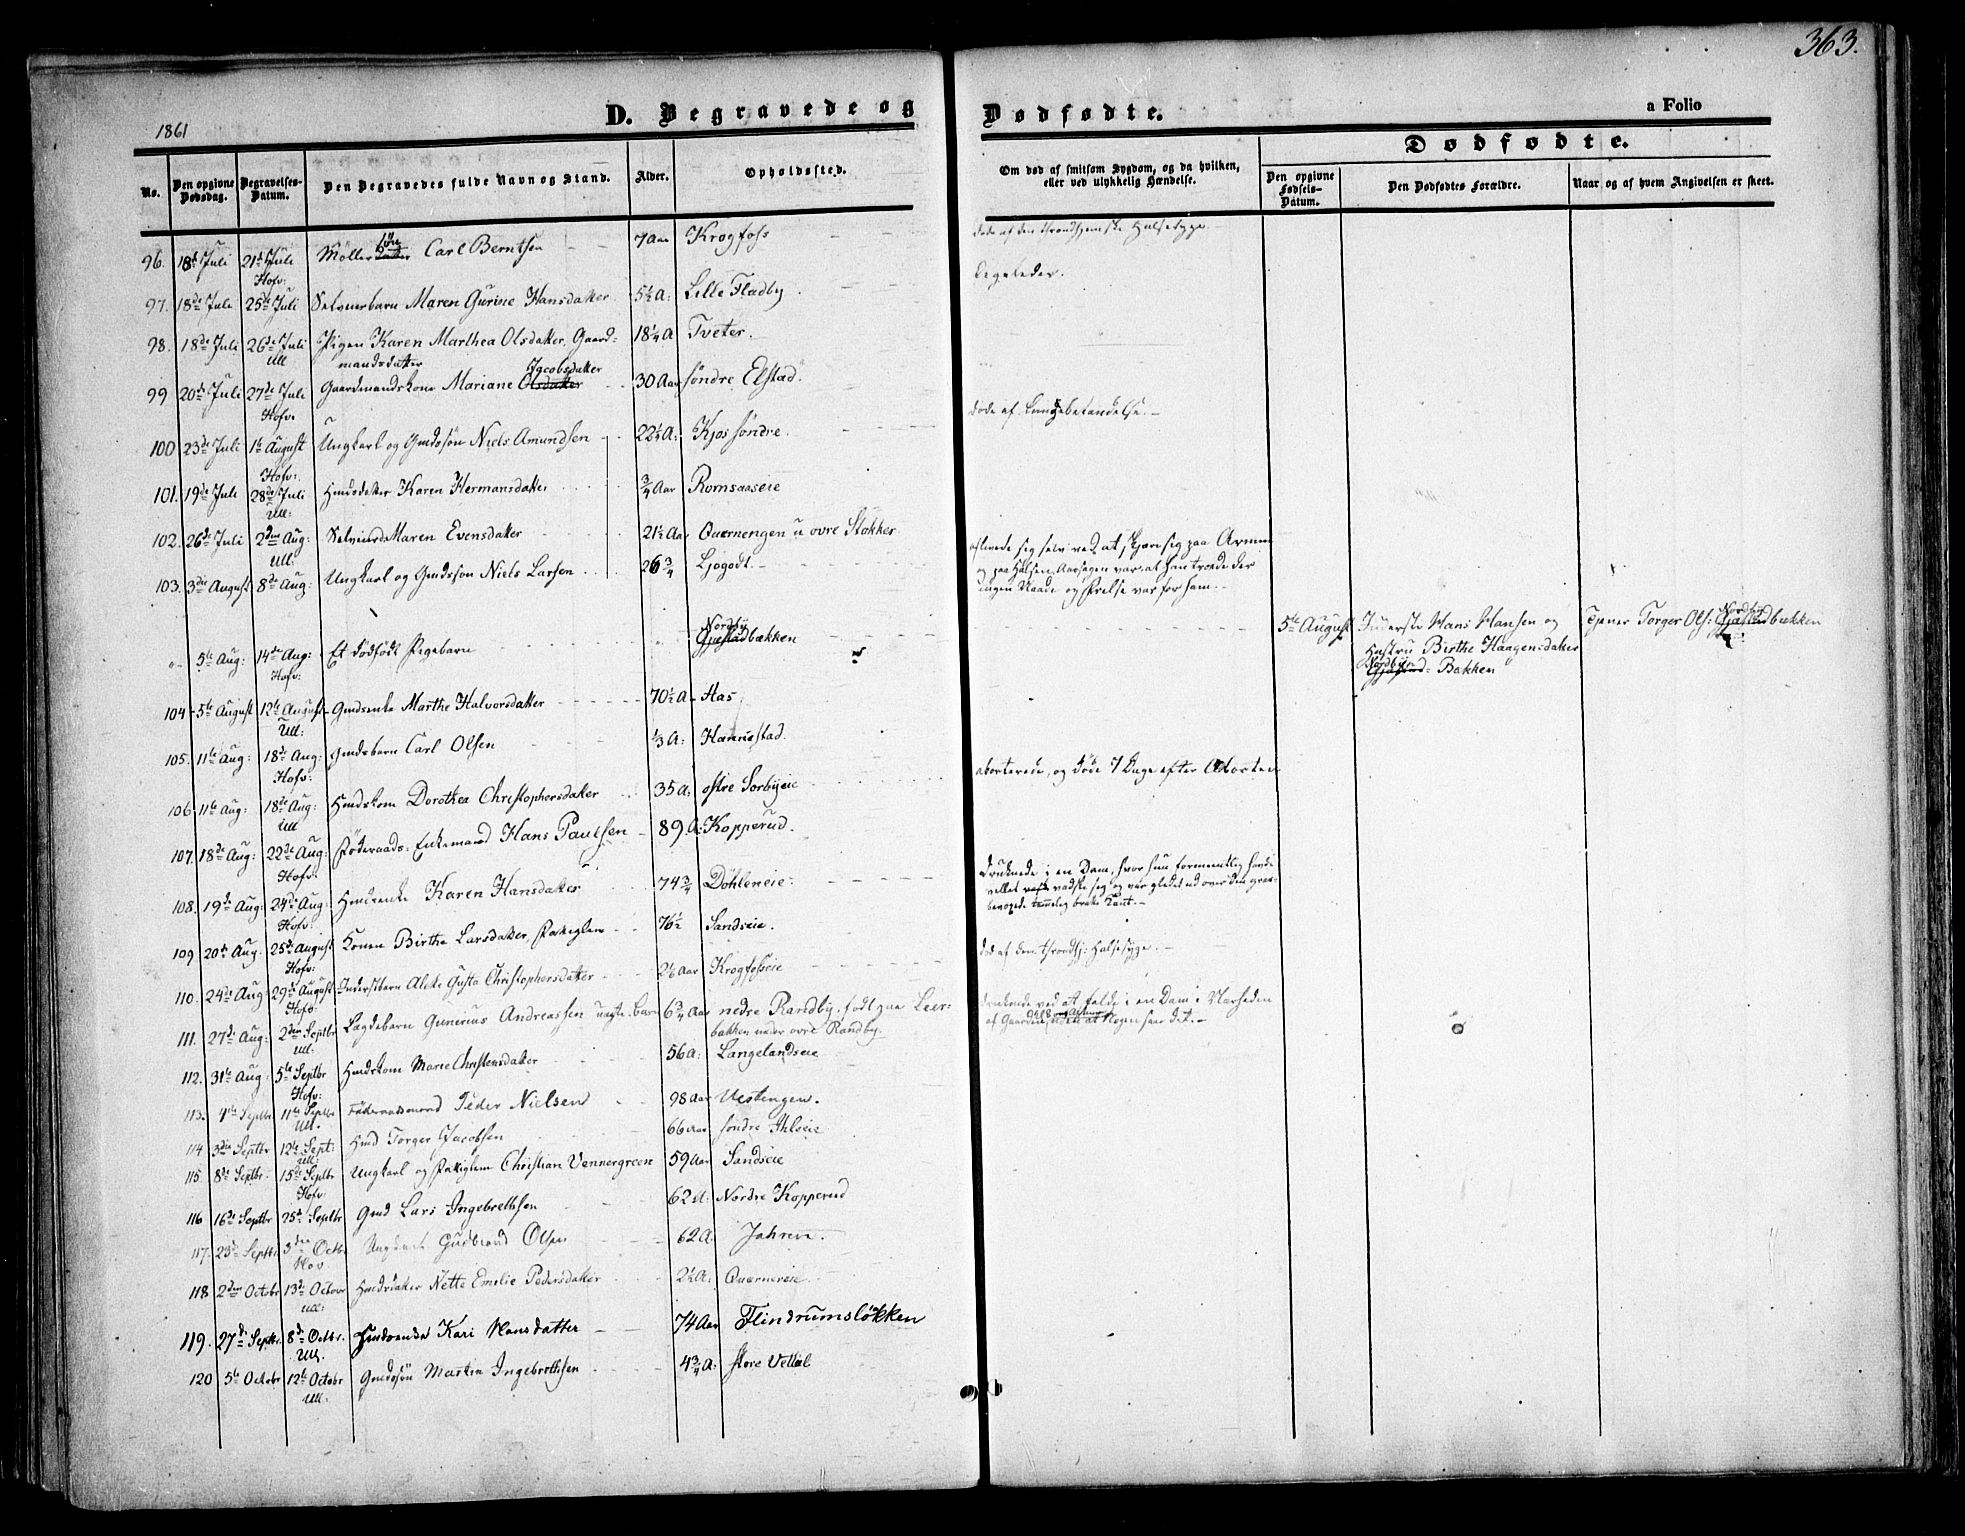 363.
1861
D. Begravede og Dødfødte.
a Folio
No.
Den opgivne Dødsdag.
Begravelses-Datum.
Den Begravedes fulde Navn og Stand.
Alder.
Opholdssted.
Om død af smitsom Sygdom, og da hvilken, eller ved ulykkelig Hændelse.
Dødfødte.
Den opgivne Fødsels-Datum.
Den Dødfødtes Forældre.
Naar og af hvem Angivelsen er skeet.
96. 18de Juli 21de Juli Møller søn Carl Berntsen 7 Aar Krogfoss døde af den throndhjemske Halssyge
Hofv:
97. 18de Juli 25de Juli Selveierbarn Maren Gurine Hansdatter 5½ A: Lille Fladby
98. 18de Juli 26de Juli Pigen Karen Marthea Olsdatter, Gaard- 18¼ A Tveter.
Ull mandsdatter
Jacobsdatter
99 20de Juli 27de Juli Gaardmandskone Mariane Olsdatter 30 Aar søndre Elstad.
Hofv.
100 23de Juli 1te August Ungkarl og Gmdssøn Niels Amundsen 22½ A: Kjos søndre. døde af Lungebetændelse.
Hofv:
101. 19de Juli 28de Juli Hmdsdatter Karen Hermansdatter ¾ Aar Romsaaseie
Ull:
102. 26de Juli 2den Aug: Selveierds Maren Evensdatter 21½ Aar Quernengen u øvre Stakker
Ull:
103. 3die August 8de Aug: Ungkarl og Gmdssøn Niels Larsen 26 ¾ Ljøgodt. aflivede sig selv ved at skjære sig paa Armen
og paa Halsen. Aarsagen var, at han troede der
ingen Naade og Frelse var for ham.
Nordby
" 5te Aug: 14de Aug: Et dødfødt Pigebarn Gjestadbækken 5te August Inderste Hans Hansen og Tjener Torger Ols: Nordby Gjestadbækken
Hofv: Hustru Birthe Haagensdatter
Nordby Bakken
104 5te August 12te August Gmdsenke Marthe Halvorsdatter 70½ A Aas
Ull:
105. 11te Aug: 18de Aug: Gmdsbarn Carl Olsen ⅓ A: Hannestad.
Hofv:
106 11te Aug: 18de Aug: Hmdskone Dorothea Christophersdatter 35 A: østre Sorbyeie aborterede, og døde 7 Dage efter Aborten
Ull
107. 18de Aug: 22de Aug: Føderaads-Enkemand Hans Paulsen 89 A: Kopperud.
Hofv:
108. 19de Aug: 24de Aug: Hmdsenke Karen Hansdatter 74 ¾ Døhleneie druknede i en Dam, hvor hun formentlig havde
villet vadske sig og var gledet ud over den græs-
bevoxede temmelig bratte Kant.
Hofv:
109 20de Aug. 25de August Konen Birthe Larsdatter, Fattiglem 76½ Sandseie.
Hofv:
110. 24de Aug: 29de August Inderstbarn Alette Gusta Christophersdatter 2⅙ Aar Krogfosseie død af den throndhj: Halssyge.
Hofv:
111. 27de Aug: 2den Septbr Lægdebarn Gunerius Andreassen uægte Barn 6¾ Aar nedre Randby, født paa Leer- druknede ved at falde i en Dam i Nærheden
Ull: bakken neder øvre Randby. af Gaarden, uden at Nogen saae det.
112. 31te Aug: 5te Septbr Hmdskone Marie Christensdatter 56 A: Langelandseie
Hofv:
113. 4de Septbr 11te Septbr Føderaadsmand Peder Nielsen 98 Aar Vestengen.
Ull.
114 3die Septbr 12te Sept: Hmd Torger Jacobsen 66 Aar søndre Ihleie
Ull:
115 8de Septbr. 15de Septbr Ungkarl og Fattiglem Christian Vennergreen 59 Aar Sandseie
Hofv:
116 16de Septbr 25de Septbr Gmd Lars Ingebrethsen 62 A: Nordre Kopperud
117. 23de Septbr 3die Octbr Gudbrand Olsen 62 A. Jahren.
Hov
118 2den Octobr 13de Octobr Hmdsdatter Nette Emilie Pedersdatter 2½ A: Quernereie
Ull:
119. 27de Septbr. 8de Octbr. Hmdsenke Kari Hansdatter 74 Aar Flindrumsløkken
Ull.
120 5te Octobr 12te Octobr Gmdssøn Martin Ingebrethsen 4¾ A: store Vettal
Ull.